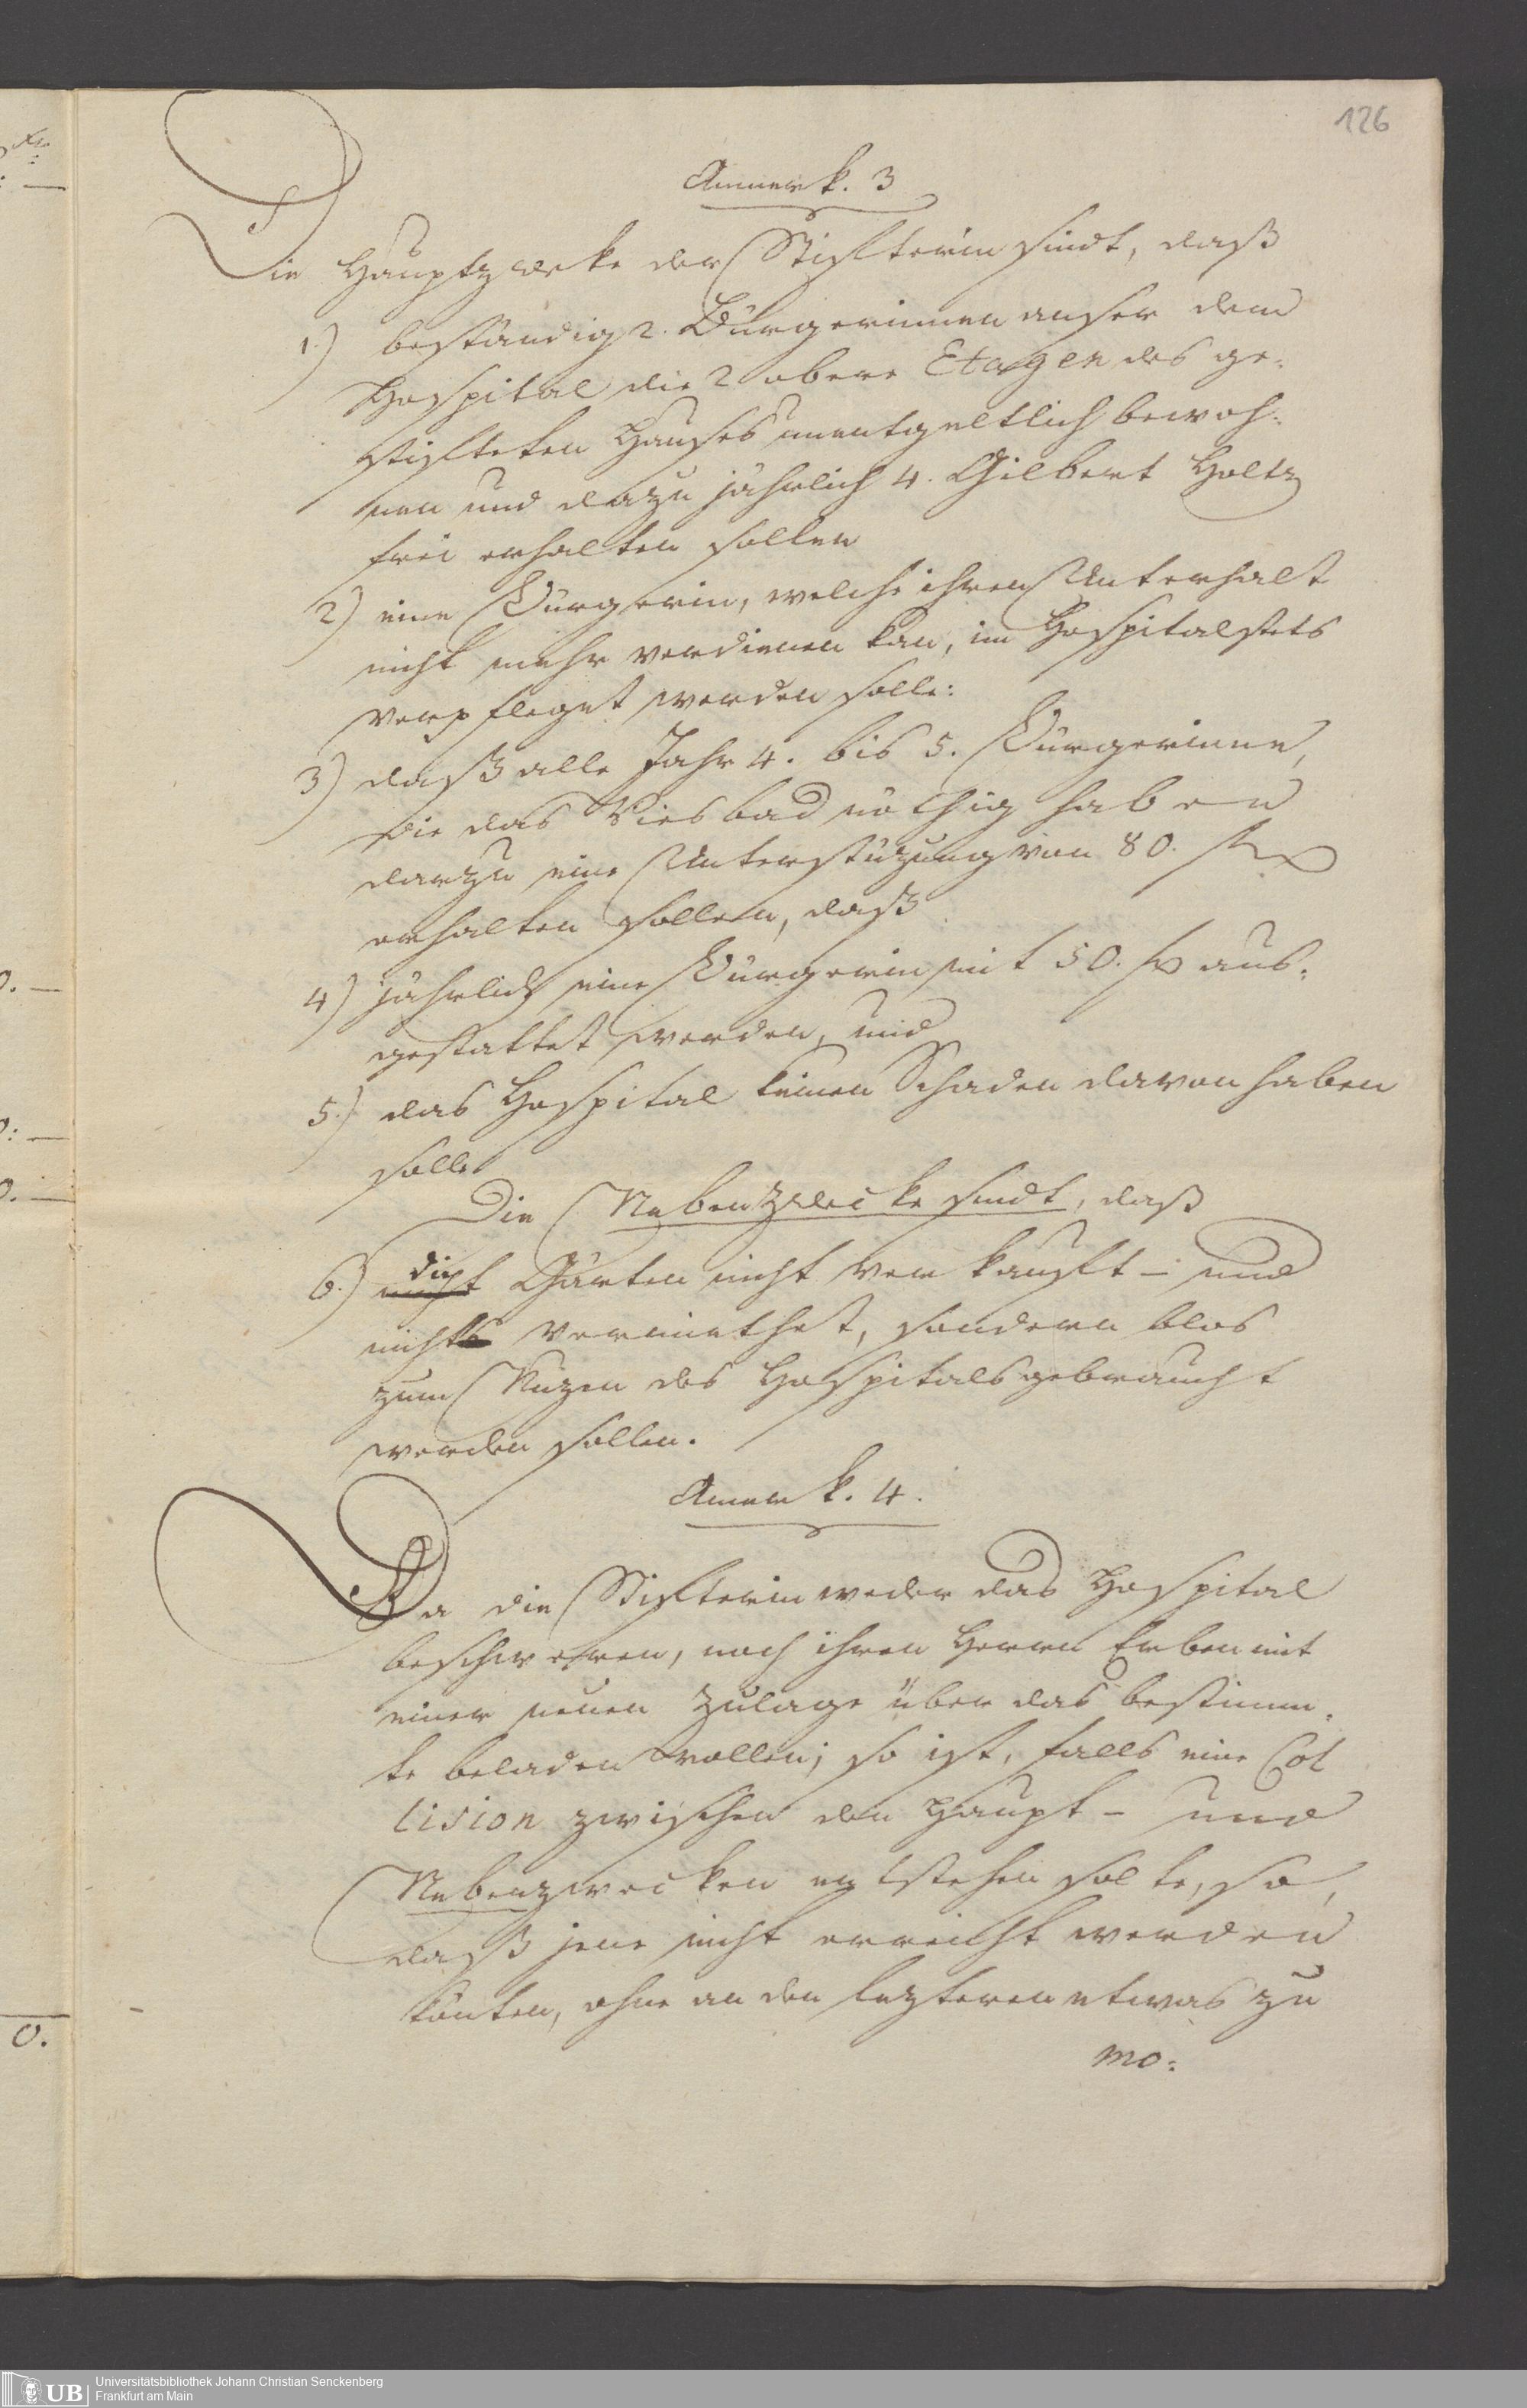 126
Anmerk. 3
Die Hauptzwecke der Stifterin sindt, daß
1.) beständig 2. Bürgerinnen auser dem
Hospital die 2 obere Etagen des ge-
stifteten Hauses unentgeltlich bewoh-
nen und dazu jährlich 4. Gilbert Holtz
frei erhalten sollen
2) eine Bürgerin, welche ihren Unterhalt
nicht mehr verdienen kan, im Hospital stets
verpfleget werden solle:
3) daß alle Jahr 4. bis 5. Bürgerinne,
die das Wiesbad nöthig haben
darzu eine Unterstüzung von 80. fl
erhalten sollen, daß
4) jährlich eine Bürgerin mit 50. fl aus-
gestattet werden, und
5.) das Hospital keinen Schaden davon haben
solle
Die Nebenzwecke sindt, daß
die
6.) nicht Gärten nicht verkauft – und
nicht vermiethet, sondern blos
zum Nuzen des Hospitals gebraucht
werden sollen.
Anmerk. 4.
Da die Stifterin weder das Hospital
beschweren, noch ihren Herrn Erben mit
einer neuen Zulage über das bestimm-
te beladen wollen; so ist, falls eine Col
lision zwischen den Haupt – und
Nebenzwecken entstehen solte, so,
daß jene nicht erreicht werden
könten, ohne an den lezteren etwas zu
mo-
0.
UB
Universitätsbibliothek Johann Christian Senckenberg
Frankfurt am Main